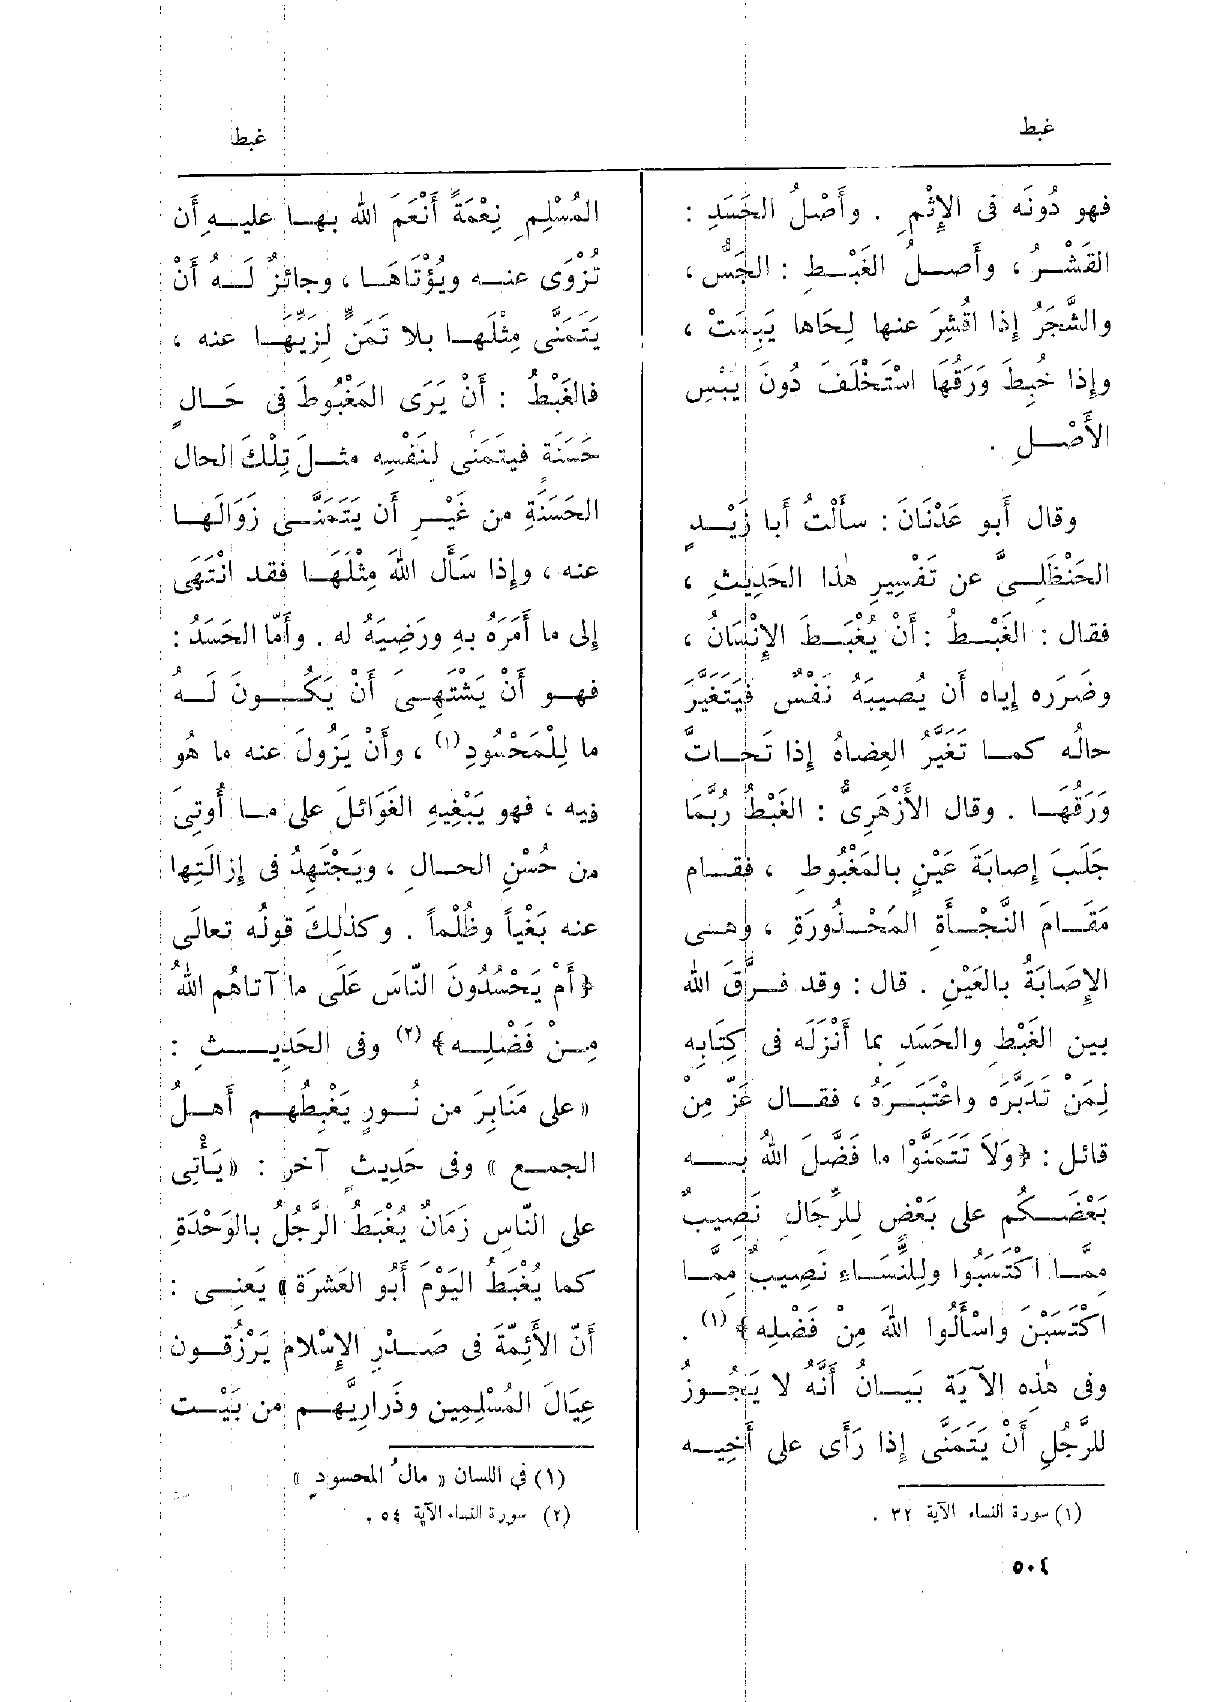 غبط
غبط
فهو دُونَه فى الإِثْمِ . وأَصْلُ الحَسَدِ :
القَشْـرُ ، وأَصـلُ الغَبْـطِ : الجَسُّ ،
والشَّجَرُ إِذا قُشِرَ عنها لِحَاها يَبِسَتْ ،
وإِذا خُبِطَ وَرَقُهَا اسْتَخْلَفَ دُونَ يُبْسِ
الأَصْـلِ .
وقال أَبو عَدْنَانَ : سأَلْتُ أَبا زَيْـدٍ
الحَنْظَلِـىَّ عن تَفْسِيرِ هٰذا الحَدِيثِ ،
فقال : الغَبْـطُ : أَنْ يُغْبَـطَ الإِنْسَانُ ،
وضَرَره إِياه أَن يُصيبَهُ نَفْسٌ فيَتَغَيَّرَ
حالُه كمـا تَغَيَّرُ العِضاهُ إِذا تَحَاتَّ
وَرَقُهَـا . وقال الأَزْهَرِىُّ : الغَبْطُ رُبَّمَا
جَلَبَ إِصابَةَ عَيْنٍ بالمَغْبُوطِ ، فقـام
مَقَـامَ النَّجْـأَةِ المَحْـذُورَةِ ، وهـى
الإِصَابَةُ بالعَيْنِ . قال : وقد فـرَّقَ الله
بين الغَبْطِ والحَسَدِ بما أَنْزَلَه فى كِتَابِه
لِمَنْ تَدَبَّرَه واعْتَبَـرَهُ ، فقـال عَزَّ مِنْ
قائل : ﴿وَلاَ تَتَمَنَّوْا ما فَضَّلَ اللهُ بِـه
بَعْضَـكُم على بَعْضٍ لِلرِّجَالِ نَصِيبٌ
مِمَّـا اكْتَسَبُوا ولِلنِّسَـاءِ نَصِيبٌ مِمَّـا
اكْتَسَبْنَ واسْأَلُوا اللهَ مِنْ فَضْلِه﴾ (١) .
وفى هٰذِه الآيَة بَيَـانُ أَنَّهُ لا يَجُـوزُ
للرَّجُلِ أَنْ يَتَمَنَّى إِذا رَأَى على أَخِيـه
(١) سورة النساء الآية ٣٢ .
المُسْلِمِ نِعْمَةً أَنْعَمَ الله بهـا عليـه أَن
تُزْوَى عنـه ويُؤْتَاهَـا ، وجائزٌ لَـهُ أَنْ
يَتَمَنَّى مِثْلَهـا بلا تَمَنٍّ لِزَيِّهَـا عنه ،
فالغَبْطُ : أَنْ يَرَى المَغْبُوطَ فى حَـالٍ
حَسَنَةٍ فيتَمَنَّى لنَفْسِه مثـلَ تِلْكَ الحال
الحَسَنَةِ من غَيْـرِ أَن يَتَمَنَّـى زَوَالَهـا
عنه ، وإِذا سَأَل اللهَ مِثْلَهَـا فقد انْتَهَى
إِلى ما أَمَرَهُ بِهِ ورَضِيَهُ له . وأَمَّا الحَسَدُ :
فهـو أَنْ يَشْتَهِـىَ أَنْ يَكُـونَ لَـهُ
ما لِلْمَحْسُودِ (١) ، وأَنْ يَزُولَ عنه ما هُو
فيه ، فهو يَبْغِيهِ الغَوَائلَ على مـا أُوتِىَ
من حُسْنِ الحـالِ ، ويَجْتَهِدُ فى إِزالَتِها
عنه بَغْياً وظُلْماً . وكذٰلِكَ قولُه تعالَى
﴿أَمْ يَحْسُدُونَ النّاسَ عَلَى ما آتاهُم اللهُ
مِـنْ فَضْلِـه﴾ (٢) وفى الحَدِيـثِ :
« على مَنَابِرَ من نُـورٍ يَغْبِطُهـم أَهـلُ
الجمـع » وفى حَدِيثٍ آخر : « يَأْتِى
على النّاسِ زَمَانٌ يُغْبَطُ الرَّجُلُ بالوَحْدَةِ
كما يُغْبَطُ اليَوْمَ أَبُو العَشرَة » يَعنِـى :
أَنّ الأَئِمَّةَ فى صَـدْرِ الإِسْلامِ يَرْزُقـون
عِيَالَ المُسْلِمِين وذَرارِيَّهـم من بَيْـت
(١) في اللسان « مالُ المحسودِ »
(٢) سورة النساء الآية ٥٤ .
٥٠٤